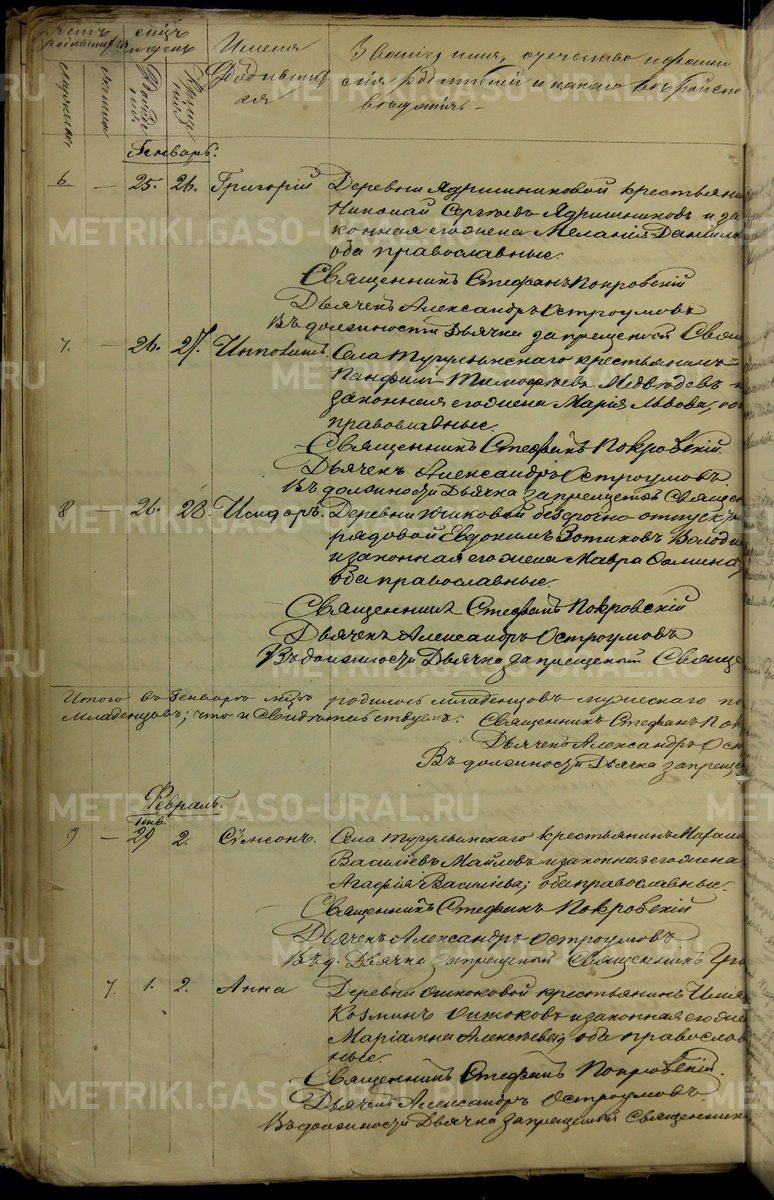 счетъ родившихся
мѣсяцъ и день
Имена родившихся
Званіе, имя, отечество и фамилія родителей и какого вѣроисповѣданія.
мужеска
женска
рожденія
крещенія
Генварь.
6. — 25. 26. Григорій Деревни Ядришниковой крестьянинъ
Николай Сергѣевъ Ядришниковъ и за-
конная его жена Меланія Даніилова
оба православные.
Священникъ Стефанъ Покровскій
Дьячекъ Александръ Остроумовъ
Въ должности Дьячка запрещенный Свящ
7. — 26. 27. Села Тугулымскаго крестьянинъ
Панфилъ Тимофѣевъ Медвѣдевъ и
законная его жена Марія Львова, оба
православные.
Священникъ Стефанъ Покровскій.
Дьячекъ Александръ Остроумовъ
Въ должности Дьячка запрещенный Священ
8 — 26. 28. Исидоръ. Деревни безсрочно-отпускной
рядовой Евдокимъ Зотиковъ
и законная его жена Мавра Фомина,
оба православные.
Священникъ Стефанъ Покровскій
Дьячекъ Александръ Остроумовъ
Въ должности Дьячка запрещенный Свяще
Итого въ Генварѣ мѣсяцѣ родилось младенцовъ мужескаго по
младенцовъ; что и свидѣтельствуемъ: Священникъ Стефанъ Пок
Дьячекъ Александръ Ост
Въ должности Дьячка запреще
Февраль.
Генв.
9 — 29 2. Сѵмеонъ. Села Тугулымскаго крестьянинъ
Василіевъ Маиловъ и законная его жена
Агафія Василіева; оба православные.
Священникъ Стефанъ Покровскій
Дьячекъ Александръ Остроумовъ
Въ д. Дьячка запрещенный Священникъ Гри
7. 1. 2. Анна Деревни крестьянинъ
Козминъ и законная его жена
Маріамна Алексѣева; оба православ-
ные.
Священникъ Стефанъ Покровскій.
Дьячекъ Александръ Остроумовъ.
Въ должности Дьячка запрещенный Священникъ
METRIKI.GASO-URAL.RU